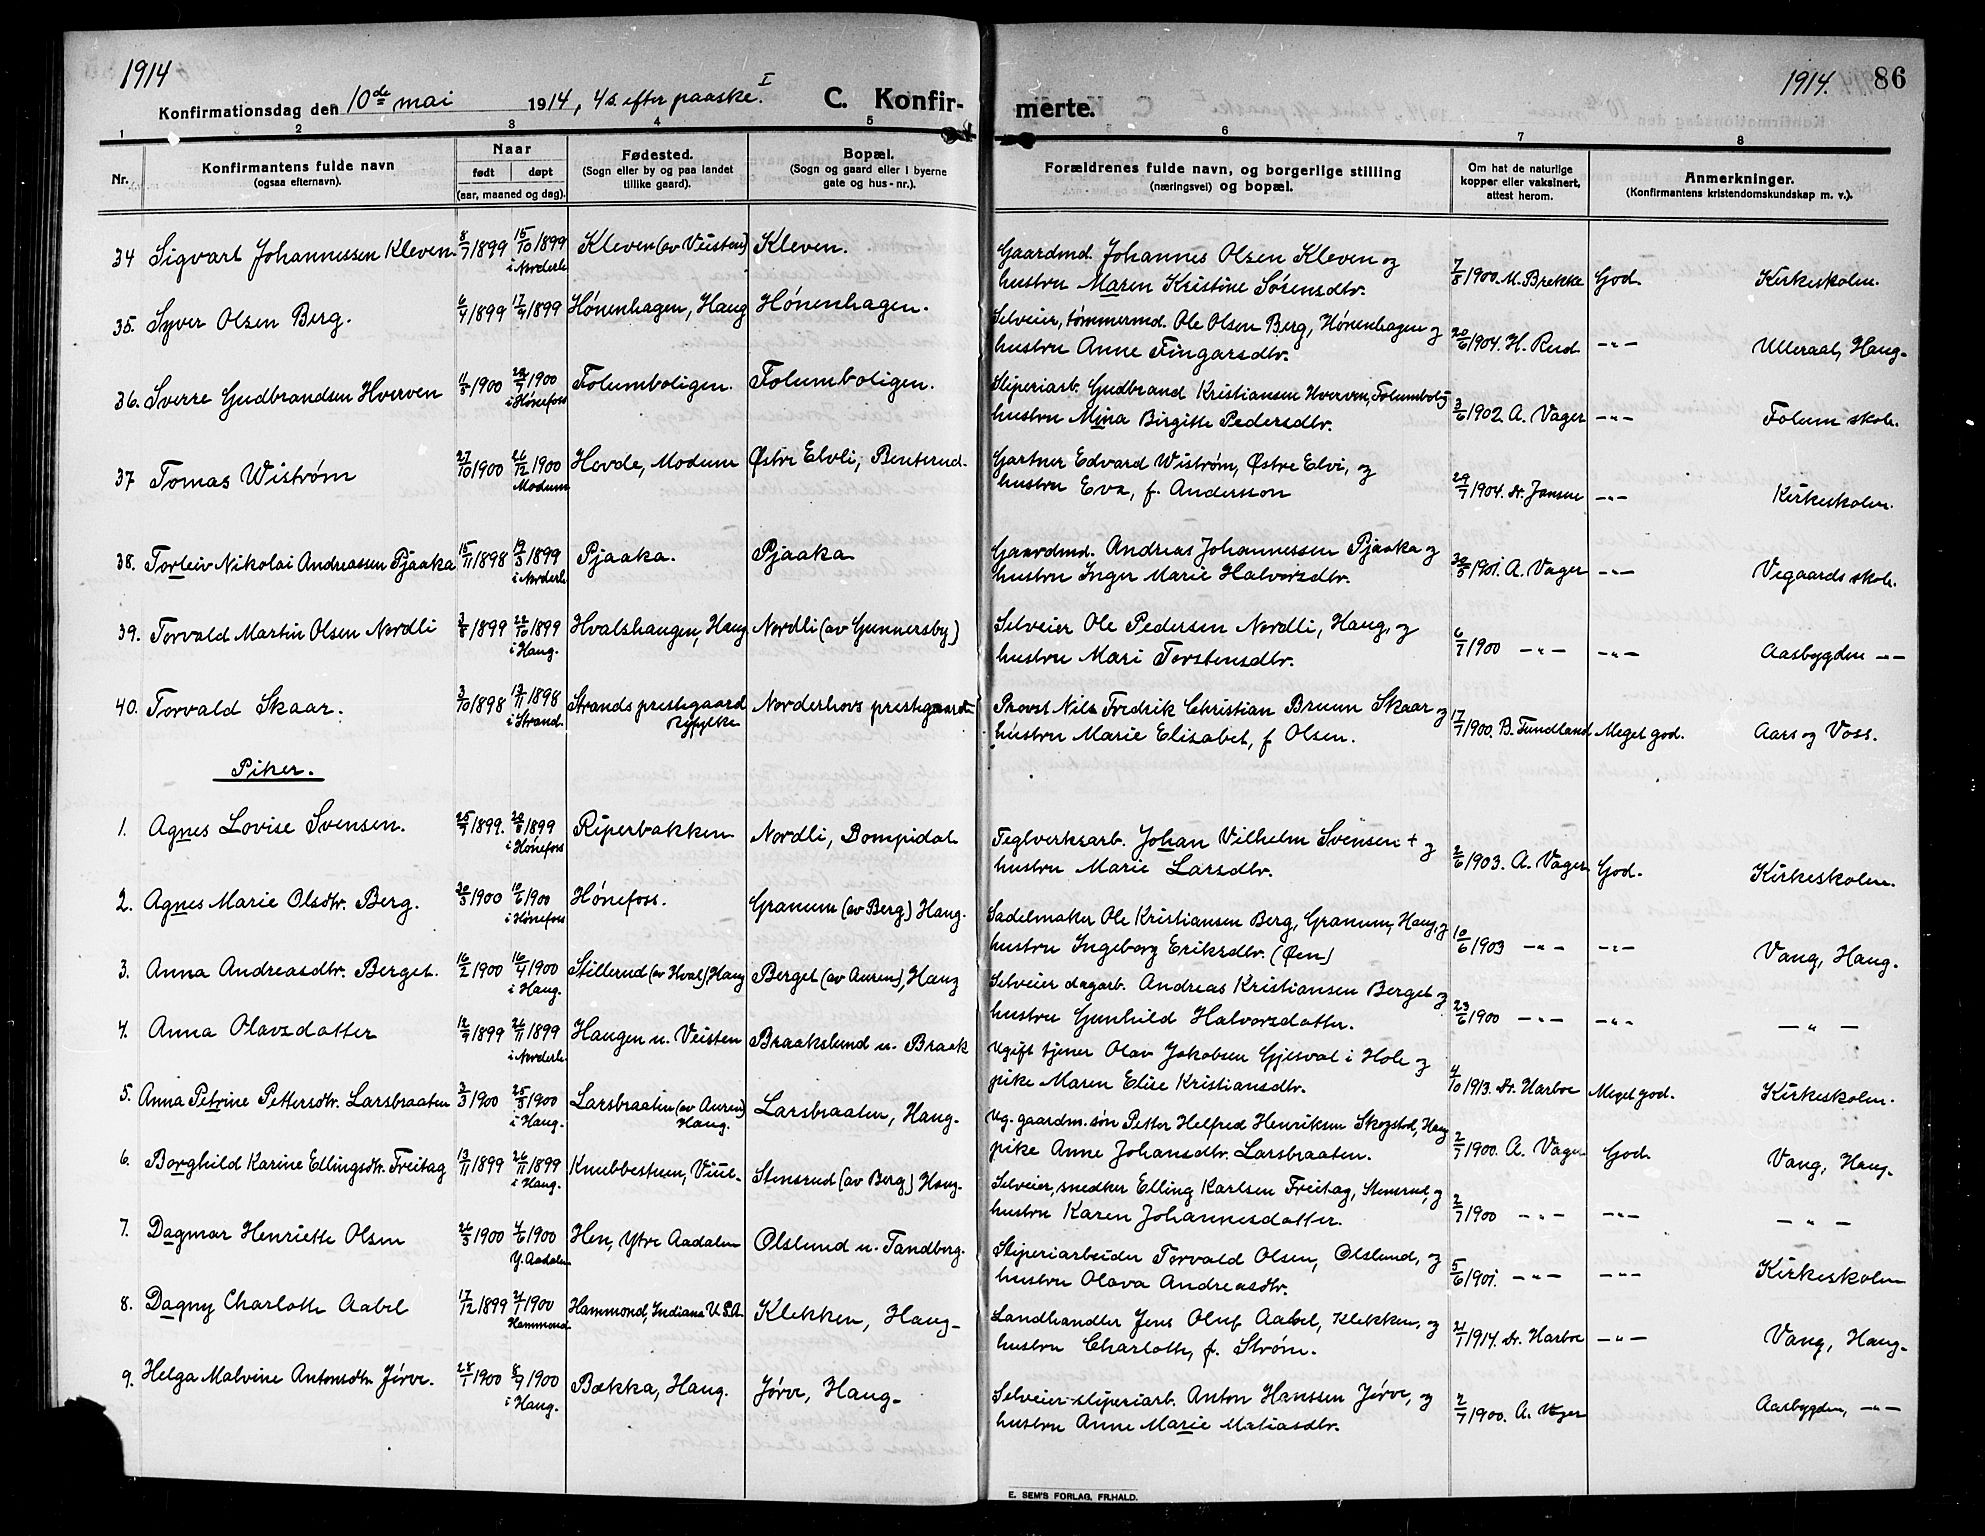 1914
Konfirmationsdag den 10de mai 1914, 4 s. efter paaske. I
C. Konfir-
merte.
1914. 86
1 2 3 4 5 6 7 8
Nr.
Konfirmantens fulde navn
(ogsaa efternavn).
Naar
født døpt
(aar, maaned og dag).
Fødested.
(Sogn eller by og paa landet
tillike gaard).
Bopæl.
(Sogn og gaard eller i byerne
gate og hus-nr.).
Forældrenes fulde navn, og borgerlige stilling
(næringsvei) og bopæl.
Om hat de naturlige
kopper eller vaksinert,
attest herom.
Anmerkninger.
(Konfirmantens kristendomskundskap m. v.).
34 Sigvart Johannessen Kleven 8/7 1899 15/10 1899 i Norderh. Kleven (av Veisten) Kleven.
Gaardmd. Johannes Olsen Kleven og
hustru Maren Kristine Sørensdtr. 7/8 1900. M. Brekke God. Kirkeskolen.
35. Syver Olsen Berg. 6/4 1899 17/9 1899 Hønenhagen, Haug Hønenhagen.
Selveier, tømmermd. Ole Olsen Berg, Hønenhagen og
hustru Anne Fingarsdtr. 20/6 1904. H. Rud -"- Ulleraal, Haug.
36. Sverre Gudbrandsen Hverven 11/5 1900 22/7 1900 i Hønefoss Folumboligen. Folumboligen.
Sliperiarb. Gudbrand Kristiansen Hverven, Folumbolig
hustru Mina Birgitte Pedersdtr. 3/6 1902 A. Vager -"- Folum skole.
37 Tomas Wistrøm 27/10 1900 26/12 1900 Modum Hovde, Modum Østre Elvli, Benterud.
Gartner Edvard Wistrøm, Østre Elvi, og
hustru Eva, f. Andersson 29/7 1904. Dr. Jensen -"- Kirkeskolen.
38. Torleiv Nikolai Andreassen Pjaaka 15/11 1898 19/3 1899 i Norderh. Pjaaka. Pjaaka
Gaardmd. Andreas Johannessen Pjaaka og
hustru Inger Marie Halvorsdtr. 30/5 1901. A. Vager -"- Vegaards skole.
39. Torvald Martin Olsen Nordli 3/8 1899 22/10 1899 i Haug. Hvalshaugen, Haug Nordli (av Gunnersby)
Selveier Ole Pedersen Nordli, Haug, og
hustru Mari Torstensdtr. 6/7 1900 -"- -"- Aasbygden -"-
40. Torvald Skaar. 3/10 1898 13/11 1898 i Strand. Strands prestegaard Ryfylke Norderhovs prestegaard
Provst Nils Fredrik Christian Bruun Skaar og
hustru Marie Elisabet, f. Olsen. 17/7 1900. B. Tundland Meget god. Aars og Voss.
Piker.
1. Agnes Lovise Svensen. 25/7 1899. 20/8 1899 i Hønefoss Riperbakken Nordli, Dompidal
Teglverksarb. Johan Vilhelm Svensen + og
hustru Marie Larsdtr. 2/6 1903. A. Vager God. Kirkeskolen.
2. Agnes Marie Olsdtr. Berg. 30/3 1900 10/6 1900 i Hønefoss Hønefoss. Granum (av Berg) Haug.
Sadelmaker Ole Kristiansen Berg, Granum, Haug, og
hustru Ingeborg Eriksdtr. (Øen) 10/6 1903 -"- -"- Vang, Haug.
3. Anna Andreasdtr. Berget. 16/2 1900 16/4 1900 i Haug. Stillerud (av Hval), Haug Berget (av Auren), Haug
Selveier dagarb. Andreas Kristiansen Berget og
hustru Gunhild Halvorsdatter. 23/6 1900 -"- -"- -"-
4. Anna Olavsdatter 12/9 1899 26/11 1899 i Norderh. Haugen u. Veisten Braakslund u. Braak
Ugift tjener Olav Jakobsen Gjesval i Hole og
pike Maren Elise Kristiansdtr. 4/10 1913. Dr. Harboe Meget god. Kirkeskolen.
5. Anna Petrine Pettersdtr. Larsbraaten 3/3 1900 25/3 1900 i Haug. Larsbraaten (av Auren) Haug. Larsbraaten, Haug.
Ug. gaardm. søn Petter Helfred Henriksen Skogstad, Haug
pike Anne Johansdtr. Larsbraaten. 2/7 1900. A. Vager God. Vang, Haug.
6. Borghild Karine Ellingsdtr. Freitag 13/11 1899 26/11 1899 i Haug. Knubbestuen, Viul. Stensrud (av Berg) Haug.
Selveier, snedker Elling Karlsen Freitag, Stensrud, og
hustru Karen Johannesdatter. 2/7 1900 -"- -"- -"-
7. Dagmar Henriette Olsen 26/3 1900 4/6 1900 Y. Aadalen Hen, Ytre Aadalen Olslund u. Tandberg.
Sliperiarbeider Torvald Olsen, Olslund, og
hustru Olava Andreasdtr. 5/6 1901. -"- -"- Kirkeskolen
8. Dagny Charlotte Aabel 17/12 1899 21/1 1900 Hammond Hammond, Indiana U.S.A. Klekken, Haug.
Landhandler Jens Oluf Aabel, Klekken, og
hustru Charlotte, f. Strøm. 21/1 1914. Dr. Harboe -"- Vang, Haug.
9. Helga Malvine Antonsdtr. Jørve. 28/1 1900 8/7 1900 i Haug. Bækka, Haug. Jørve, Haug.
Selveier-sliperiarb. Anton Hanssen Jørve, og
hustru Anne Marie Matiasdtr. 2/7 1900. A. Vager Aasbygden, -"-
E. SEM'S FORLAG, FR.HALD.